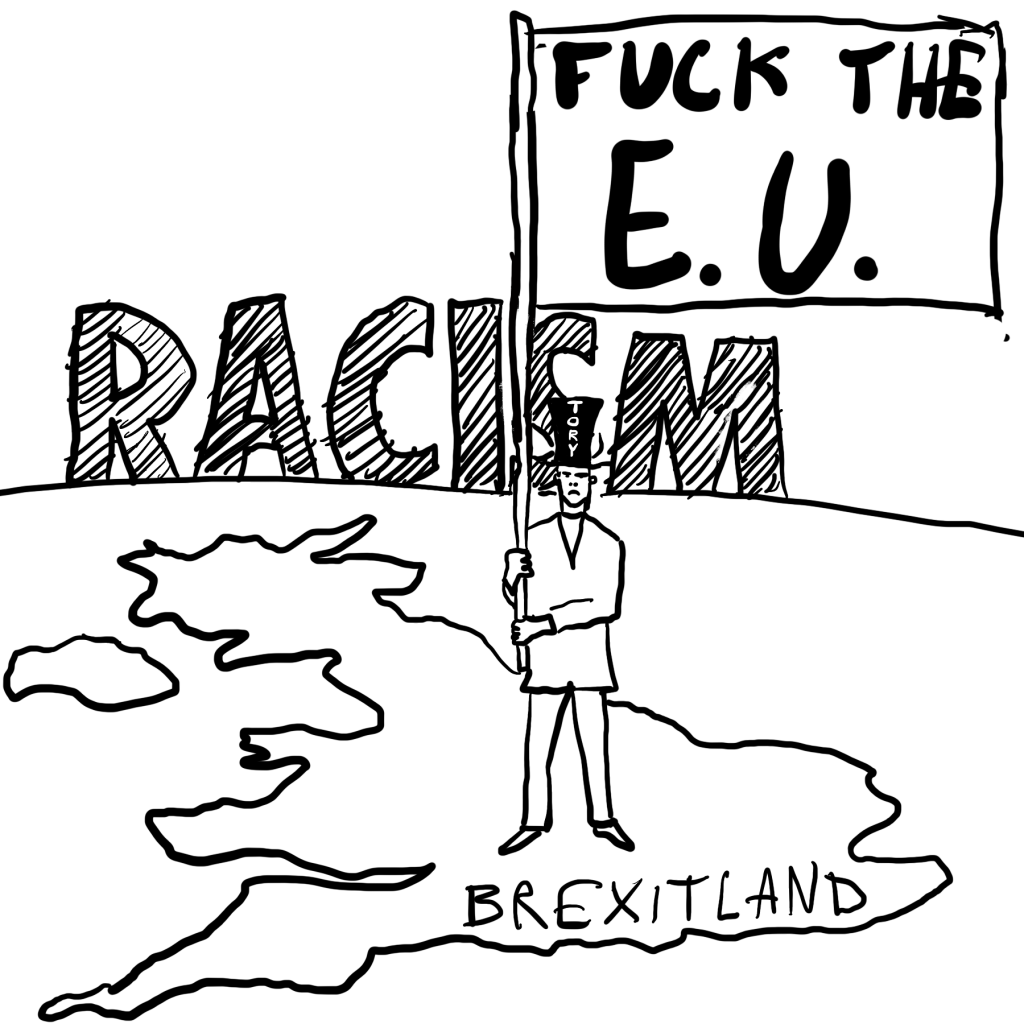 FUCK THE
E.U.
RACISM
TORY
BREXITLAND